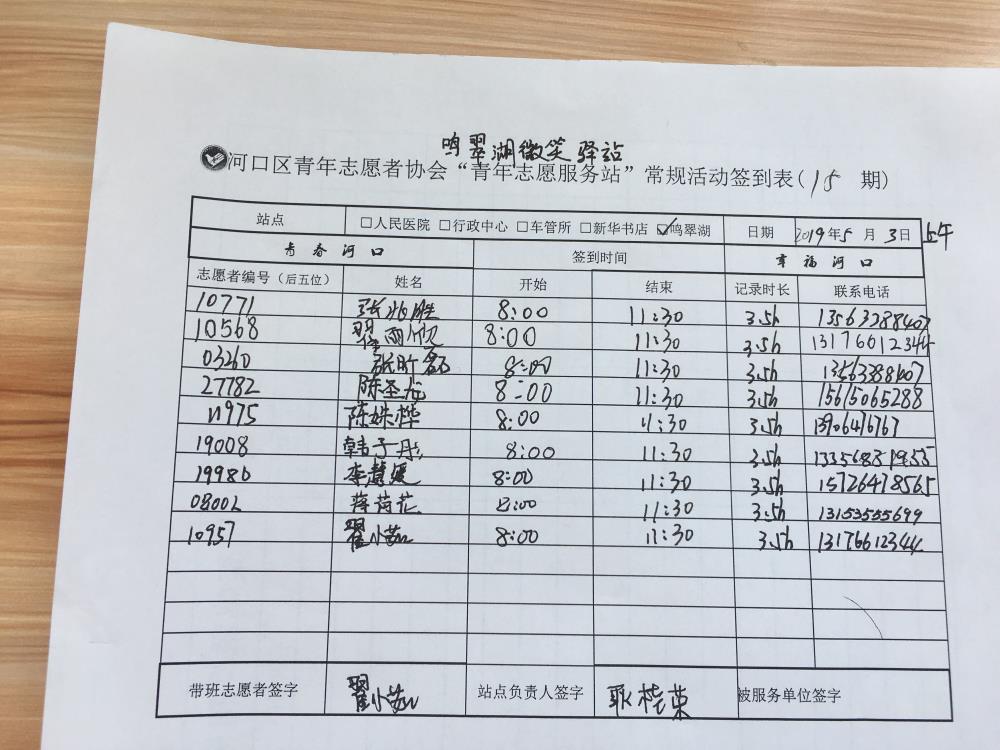 鸣翠湖微笑驿站
河口区青年志愿者协会“青年志愿服务站”常规活动签到表(15 期)
站点 □人民医院 □行政中心 □车管所 □新华书店 ☑鸣翠湖 日期 2019年5月3日 上午
青春河口 签到时间 幸福河口
志愿者编号(后五位) 姓名 开始 结束 记录时长 联系电话
10771 张兆胜 8:00 11:30 3.5h 13563288407
10568 翟雨欣 8:00 11:30 3.5h 13176612344
03260 张昕磊 8:00 11:30 3.5h
27782 陈圣龙 8:00 11:30 3.5h 15615065288
11975 陈姝桦 8:00 11:30 3.5h
19008 韩子彤 8:00 11:30 3.5h
19986 李慧媛 8:00 11:30 3.5h 15726478565
08002 蒋荷花 8:00 11:30 3.5h 13153555699
10957 翟小茹 8:00 11:30 3.5h 13176612344
带班志愿者签字 翟小茹 站点负责人签字 耿桂荣 被服务单位签字